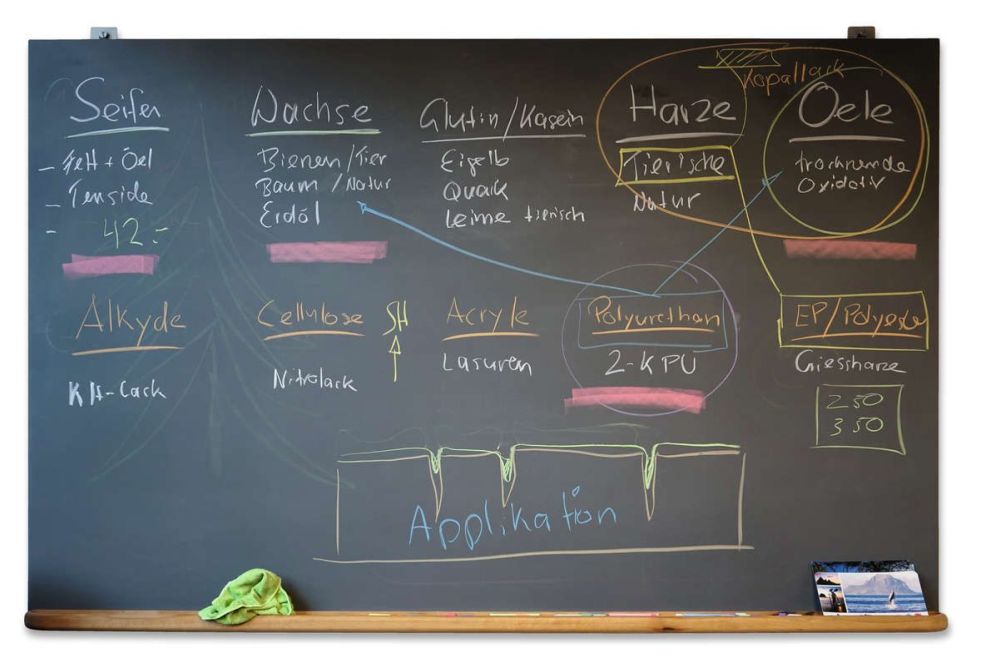 Kopallack
Seifen
- Fett + Öel
- Tenside
- 42.-
Wachse
Bienen/Tier
Baum/Natur
Erdöl
Glutin/Kasein
Eigelb
Quark
Leime tierisch
Harze
Tierische
Natur
Oele
trocknende
Oxidativ
Alkyde
KH-Lack
Cellulose
Nitrolack
SH
Acryle
Lasuren
Polyurethan
2-K PU
EP/Polyester
Giessharze
250
350
Applikation